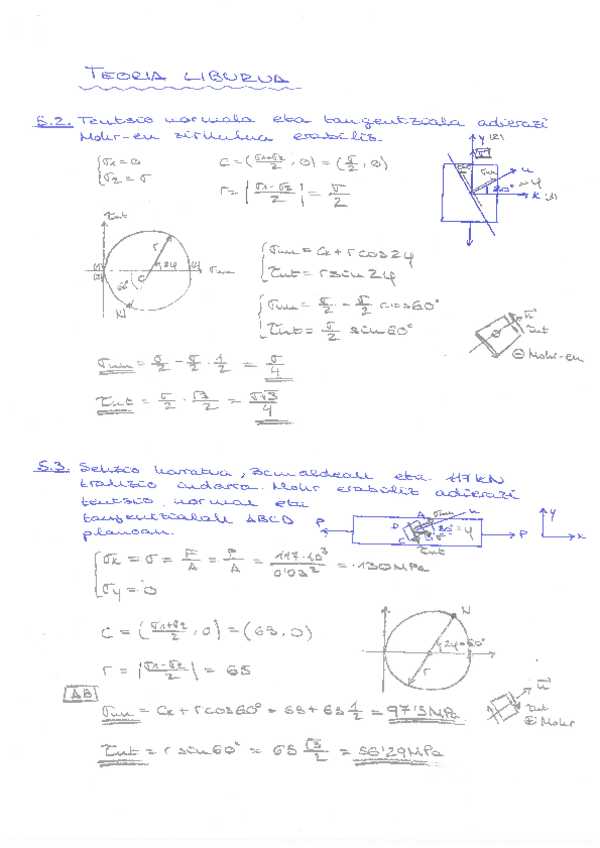 TEORIA LIBURUA
5.2. Tentsio normala eta tangentziala adierazi
Mohr-en zirkulua erabiliz.
σ1 = 0
σ2 = σ
C = ((σ1+σ2)/2, 0) = (σ/2, 0)
r = |(σ1-σ2)/2| = σ/2
σnn = Cx + r cos2φ
τnt = r sin2φ
σnn = σ/2 - σ/2 cos60°
τnt = σ/2 sin60°
⊖ Mohr-en
σnn = σ/2 - σ/2 · 1/2 = σ/4
τnt = σ/2 · √3/2 = σ√3/4
5.3. Sekzio karratua, 3cm aldeak eta 117kN
trakzio indarra. Mohr erabiliz adierazi
tentsio normal eta
tangentzialak ABCD
planoan.
σx = σ = F/A = P/A = 117·10³/0'03² = 130MPa
σy = 0
C = ((σ1+σ2)/2, 0) = (65, 0)
r = |(σ1-σ2)/2| = 65
2φ=60°
AB
σnn = Cx + r cos60° = 65 + 65 1/2 = 97'5MPa
⊕ Mohr
τnt = r sin60° = 65 √3/2 = 56'29MPa